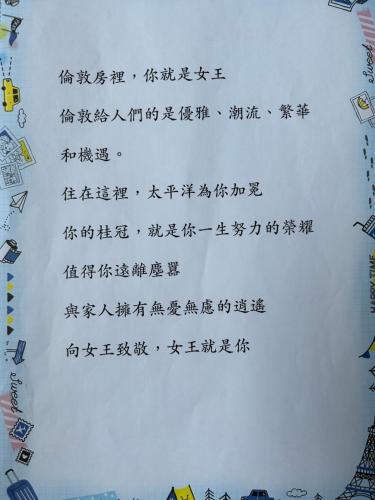 倫敦房裡，你就是女王
倫敦給人們的是優雅、潮流、繁華
和機遇。
住在這裡，太平洋為你加冕
你的桂冠，就是你一生努力的榮耀
值得你遠離塵囂
與家人擁有無憂無慮的逍遙
向女王致敬，女王就是你
Sweet
HAPPY TIME
Sweet
Sweet